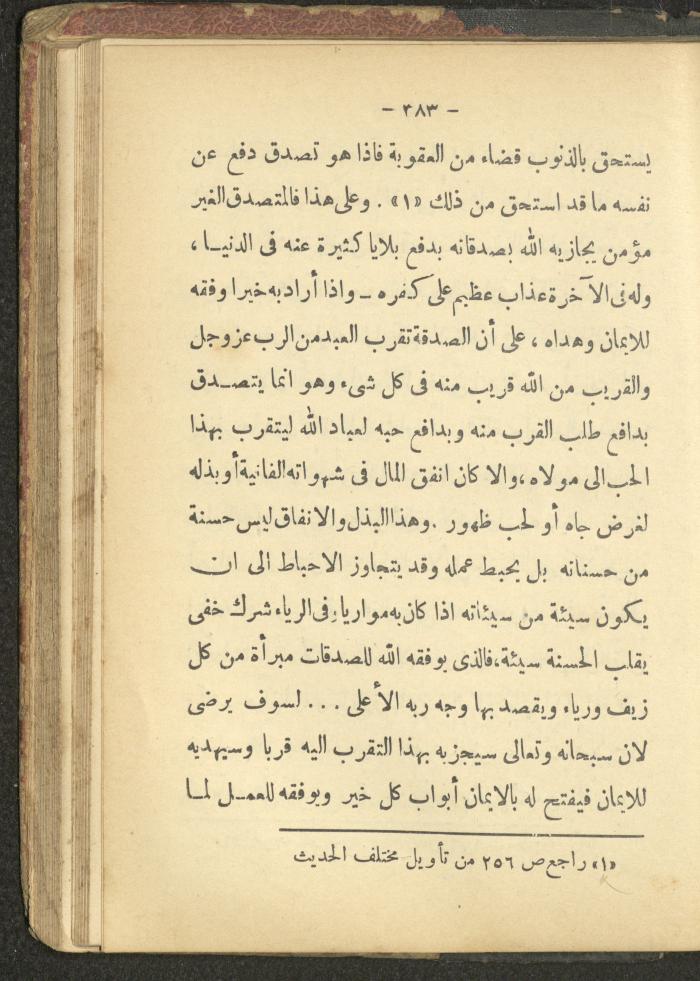 - ٣٨٣ -
يستحق بالذنوب قضاء من العقوبة فاذا هو تصدق دفع عن
نفسه ما قد استحق من ذلك «١» . وعلى هذا فالمتصدق الغير
مؤمن يجازيه الله بصدقاته بدفع بلايا كثيرة عنه فى الدنيـا ،
وله فى الآخرة عذاب عظيم على كفره ـ واذا أراد به خيرا وفقه
للايمان وهداه ، على أن الصدقة تقرب العبد من الرب عز وجل
والقريب من الله قريب منه فى كل شىء وهو انما يتصـدق
بدافع طلب القرب منه وبدافع حبه لعباد الله ليتقرب بهذا
الحب الى مولاه ، والا كان انفق المال فى شهواته الفانية أو بذله
لغرض جاه أو لحب ظهور . وهذا البذل والانفاق ليس حسنة
من حسناته بل يحبط عمله وقد يتجاوز الاحباط الى ان
يكون سيئة من سيئاته اذا كان به مواريا، فى الرياء شرك خفى
يقلب الحسنة سيئة، فالذى يوفقه الله للصدقات مبرأة من كل
زيف ورياء ويقصد بها وجه ربه الأعلى ... لسوف يرضى
لان سبحانه وتعالى سيجزيه بهذا التقرب اليه قربا وسيهديه
للايمان فيفتح له بالايمان أبواب كل خير ويوفقه للعمـل لمـا
«١» راجع ص ٢٥٦ من تأويل مختلف الحديث